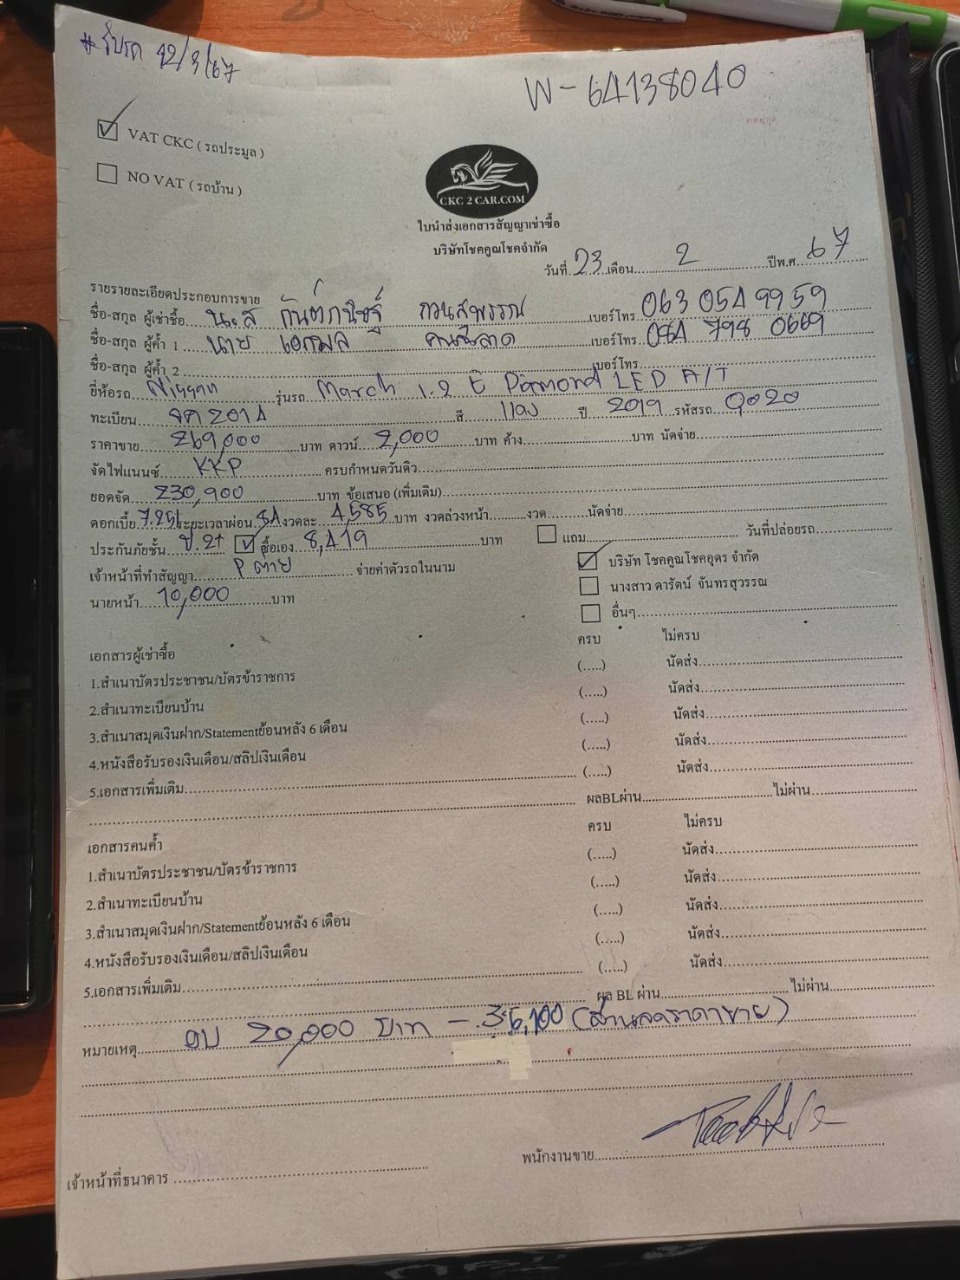 # รับรถ 12/3/67
W-64138040
VAT CKC ( รถประมูล )
NO VAT ( รถบ้าน )
CKC 2 CAR.COM
ใบนำส่งเอกสารสัญญาเช่าซื้อ
บริษัทโชคคูณโชคจำกัด
วันที่ 23 เดือน 2 ปีพ.ศ. 67
รายรายละเอียดประกอบการขาย
ชื่อ-สกุล ผู้เช่าซื้อ น.ส กันต์กนิษฐ์ เบอร์โทร 063 0549959
ชื่อ-สกุล ผู้ค้ำ 1 นาย เอกมล เบอร์โทร 084 798 0669
ชื่อ-สกุล ผู้ค้ำ 2 เบอร์โทร
ยี่ห้อรถ Nissan รุ่นรถ March 1.2 E Diamond LED A/T
ทะเบียน 2014 สี แดง ปี 2019 รหัสรถ 9020
ราคาขาย 269,000 บาท ดาวน์ 2,000 บาท ค้าง บาท นัดจ่าย
จัดไฟแนนซ์ KKP ครบกำหนดวันดิว
ยอดจัด 230,900 บาท ข้อเสนอ (เพิ่มเติม)
ดอกเบี้ย 7.25 ระยะเวลาผ่อน 84 งวดละ 4,585 บาท งวดล่วงหน้า งวด นัดจ่าย
ประกันภัยชั้น ป.2+ ซื้อเอง 8,419 บาท แถม วันที่ปล่อยรถ
เจ้าหน้าที่ทำสัญญา P ต่าย จ่ายค่าตัวรถในนาม บริษัท โชคคูณโชคอุดร จำกัด
นางสาว ดารัตน์ จันทรสุวรรณ
นายหน้า 10,000 บาท
อื่นๆ
เอกสารผู้เช่าซื้อ ครบ ไม่ครบ
1.สำเนาบัตรประชาชน/บัตรข้าราชการ (.....) นัดส่ง
2.สำเนาทะเบียนบ้าน (.....) นัดส่ง
3.สำเนาสมุดเงินฝาก/Statementย้อนหลัง 6 เดือน (.....) นัดส่ง
4.หนังสือรับรองเงินเดือน/สลิปเงินเดือน (.....) นัดส่ง
5.เอกสารเพิ่มเติม (.....) นัดส่ง
ผลBLผ่าน ไม่ผ่าน
เอกสารคนค้ำ ครบ ไม่ครบ
1.สำเนาบัตรประชาชน/บัตรข้าราชการ (.....) นัดส่ง
2.สำเนาทะเบียนบ้าน (.....) นัดส่ง
3.สำเนาสมุดเงินฝาก/Statementย้อนหลัง 6 เดือน (.....) นัดส่ง
4.หนังสือรับรองเงินเดือน/สลิปเงินเดือน (.....) นัดส่ง
5.เอกสารเพิ่มเติม (.....) นัดส่ง
ผล BL ผ่าน ไม่ผ่าน
หมายเหตุ งบ 20,000 บาท - 36,100 (ส่วนลดราคาขาย)
พนักงานขาย
เจ้าหน้าที่ธนาคาร